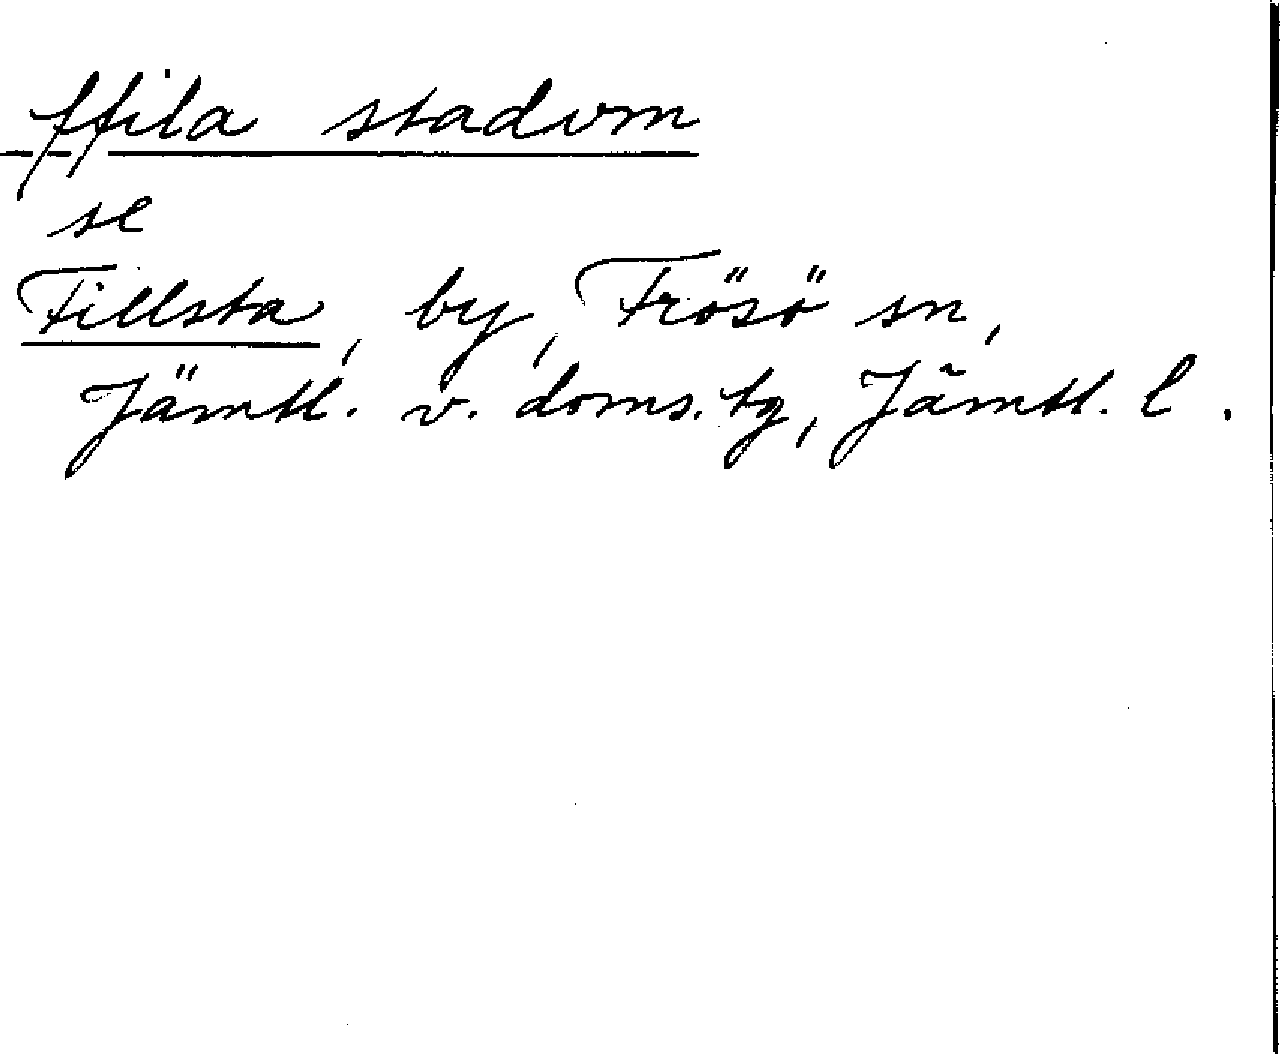 ffila stadvm
se
Fillsta, by, Frösö sn,
Jämtl. v. doms. tg, Jämtl. l.